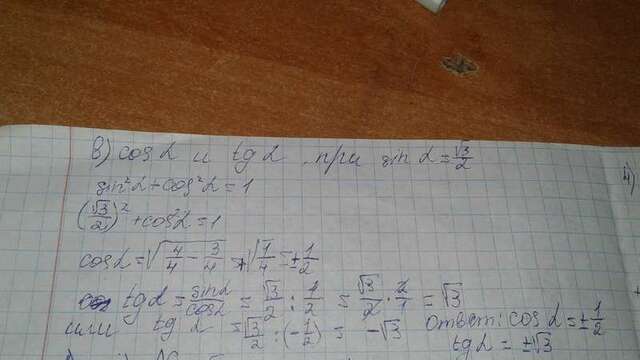 в) cos α и tg α при sin α = √3/2
sin²α + cos²α = 1
(√3/2)² + cos²α = 1
cos α = √(4/4 − 3/4) = √(1/4) = ±1/2
tg α = sin α/cos α = √3/2 : 1/2 = √3/2 · 2/1 = √3
или tg α = √3/2 : (−1/2) = −√3
ответ: cos α = ±1/2
tg α = ±√3
4)